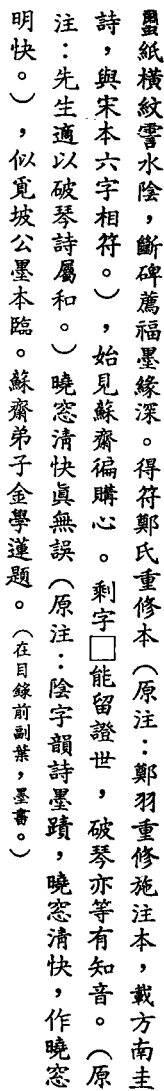 蠒紙橫紋霅水陰，斷碑薦福墨緣深。得符鄭氏重修本（原注：鄭羽重修施注本，載方南圭
詩，與宋本六字相符。），始見蘇齋徧購心。剩字□能留證世，破琴亦等有知音。（原
注：先生適以破琴詩屬和。）曉窓清快眞無誤（原注：陰字韻詩墨蹟，曉窓清快，作曉窓
明快。），似覓坡公墨本臨。蘇齋弟子金學蓮題。（在目錄前副葉，墨書。）